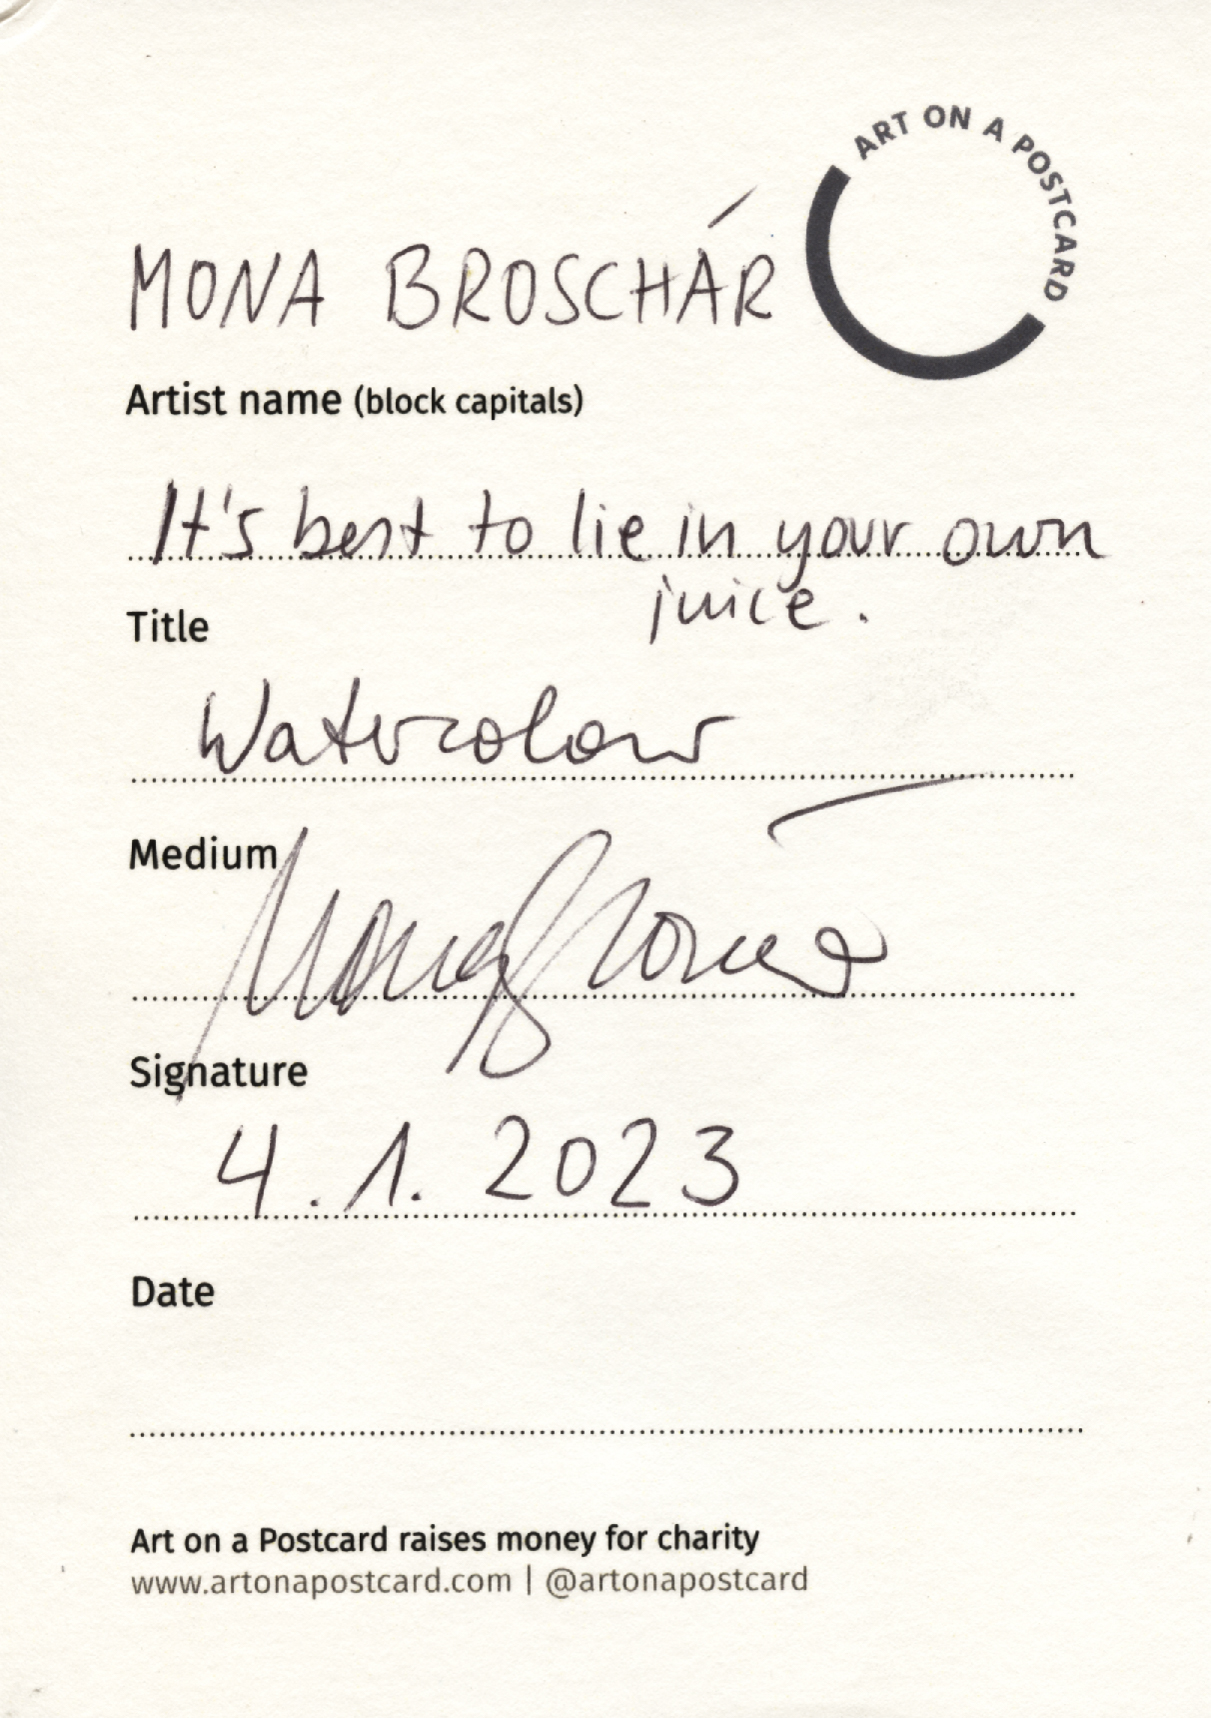 ART ON A POSTCARD
MONA BROSCHÁR
Artist name (block capitals)
It's best to lie in your own
juice.
Title
Watercolour
Medium
Signature
4.1.2023
Date
Art on a Postcard raises money for charity
www.artonapostcard.com | @artonapostcard